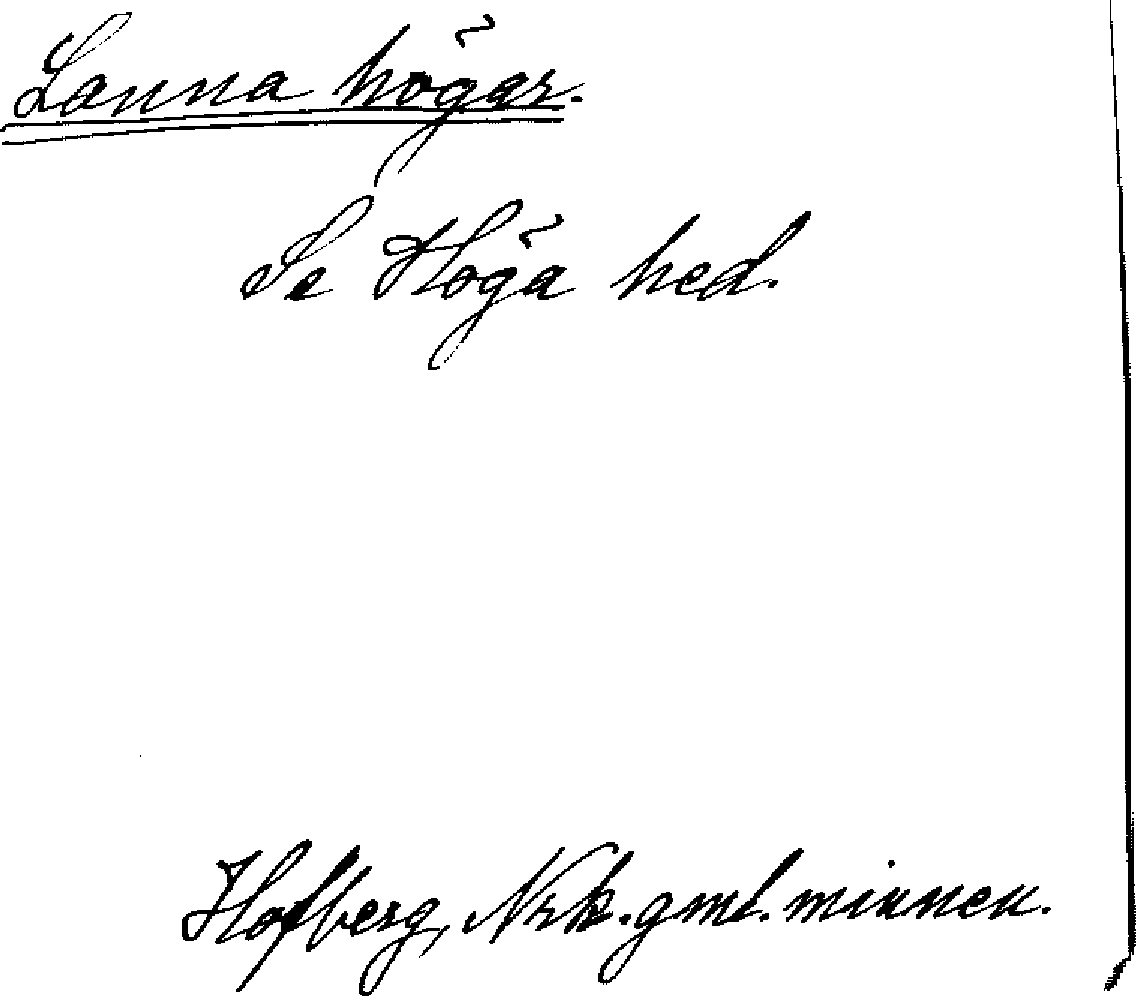 Lanna högar.
Se Höga hed.
Hofberg, Nrk. gml. minnen.